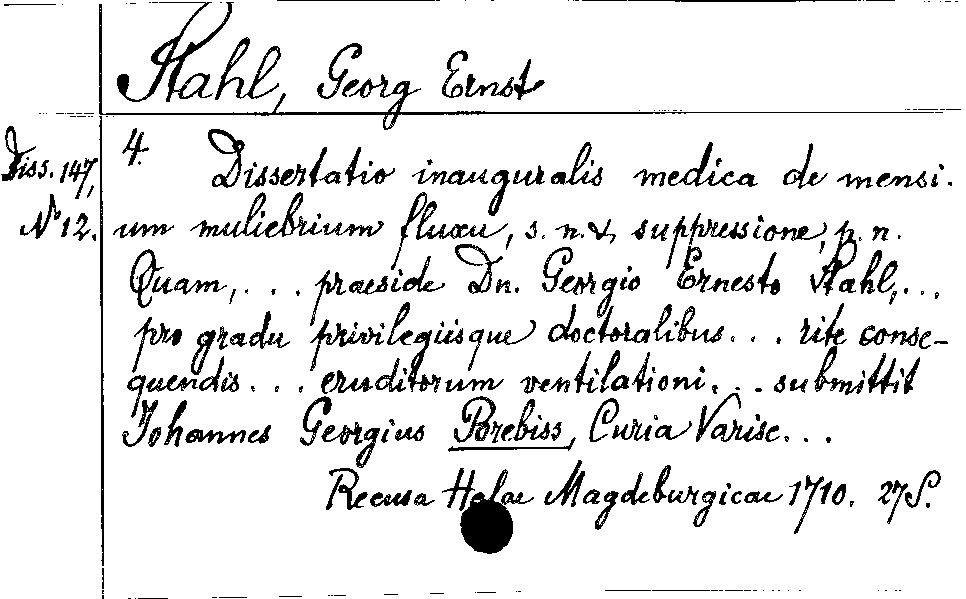 Stahl, Georg Ernst
Diss. 147,
N° 12.
4. Dissertatio inauguralis medica de mensi-
um muliebrium fluxu, s. n. &, suppressione, p. n.
Quam, . . . praeside Dn. Georgio Ernesto Stahl, . . .
pro gradu privilegiisque doctoralibus . . . rite conse-
quendis . . . eruditorum ventilationi . . . submittit
Johannes Georgius Borebiss, Curia Varisc. . .
Recusa Halae Magdeburgicae 1710. 27 S.